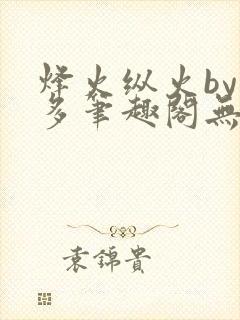 烽火纵火by
多笔趣阁無
袁錦貴